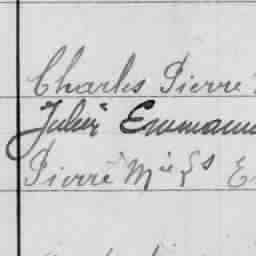 Charles Pierre
Julien Emmanu
Pierre Mie